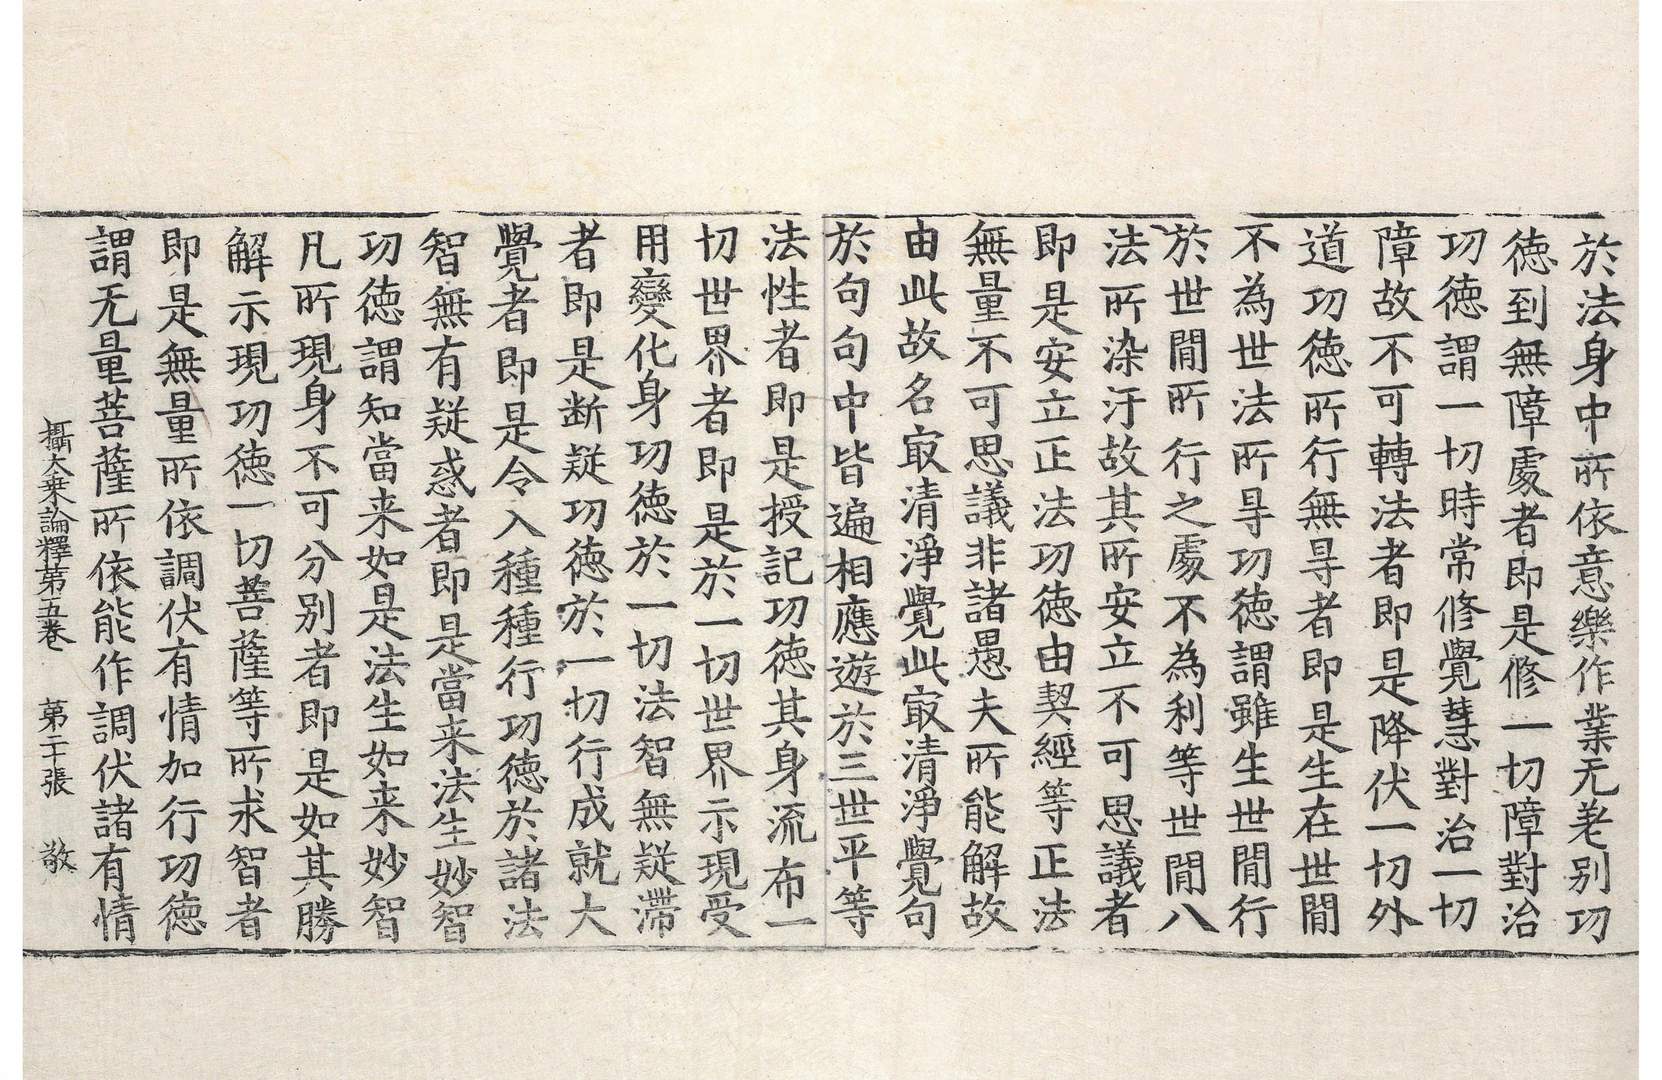 於法身中所依意樂作業无差別功
德到無障處者即是修一切障對治
功德謂一切時常修覺慧對治一切
障故不可轉法者即是降伏一切外
道功德所行無㝵者即是生在世間
不為世法所㝵功德謂雖生世間行
於世間所行之處不為利等世間八
法所染汙故其所安立不可思議者
即是安立正法功德由契經等正法
無量不可思議非諸愚夫所能解故
由此故名㝡清淨覺此㝡清淨覺句
於句句中皆遍相應遊於三世平等
法性者即是授記功德其身流布一
切世界者即是於一切世界示現受
用變化身功德於一切法智無疑滯
者即是断疑功德於一切行成就大
覺者即是令入種種行功德於諸法
智無有疑惑者即是當来法生妙智
功德謂知當来如是法生如来妙智
凡所現身不可分別者即是如其勝
解示現功德一切菩薩等所求智者
即是無量所依調伏有情加行功德
謂无量菩薩所依能作調伏諸有情
攝大乗論釋第五卷 第二十張 敬